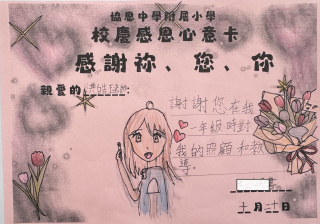 協恩中學附屬小學
校慶感恩心意卡
感謝祢、您、你
親愛的
謝謝您在我
一年級時對
我的照顧和教
導。
十月二十日